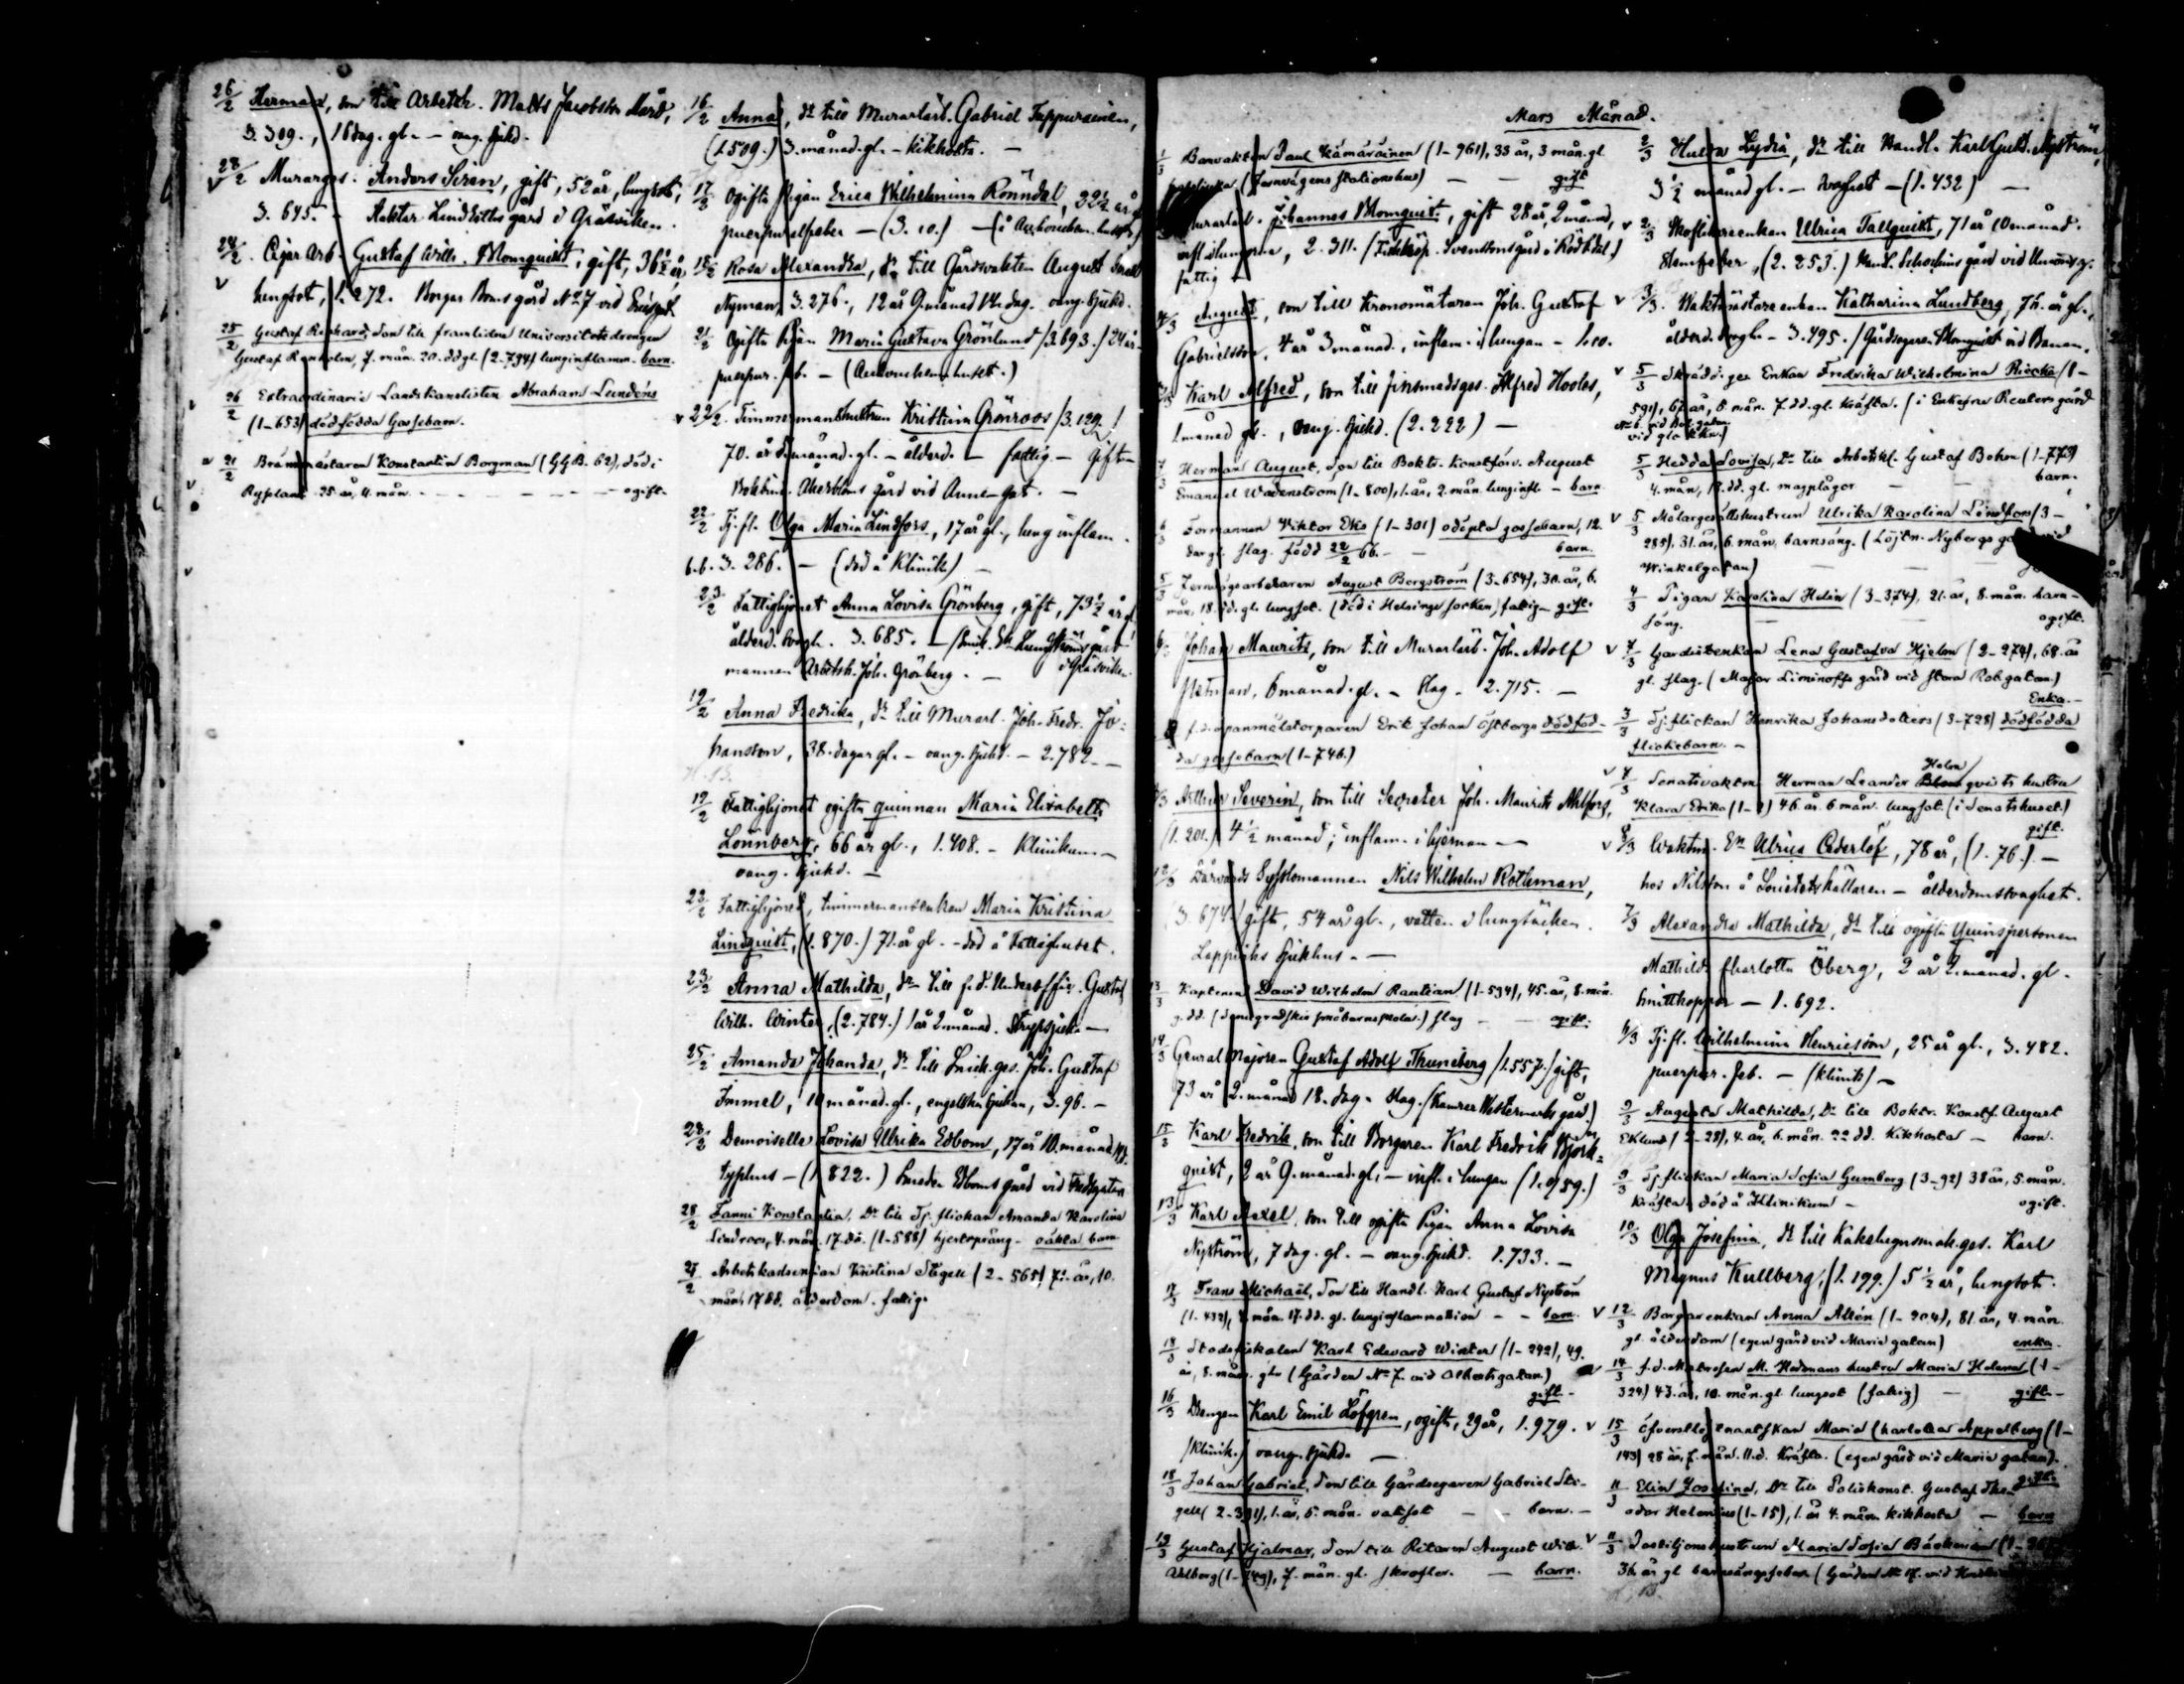 26/2 Herman, son till Arbetsk. Matts Jacobsson
3. 309., 16 dag. gl. – oang. sjukd.
28/2 Murarges. Anders Siren, gift, 52 år, lungsot,
3. 645. – gård i Gräsviken.
24/2 Cigar Arb. Gustaf Wilh. Blomquist, gift, 36½ år,
lungsot, 1. 272. Borgar Boms gård No 7 vid
25/2 Gustaf Richard, son till framlidne Universitetsdrengen
Gustaf Renholm, 7. mån. 20. dd gl. (2-794) lunginflamm. barn.
26/2 Extraordinarie Landtkanslisten Abraham Lundéns
(1-653) dödfödda Gossebarn.
21/2 Brännmästaren Konstantin Borgman (GGB. 62), död i
Ryssland 25 år, 4. mån. – – – – ogift.
16/2 Anna, dr till Murarlärl. Gabriel Tappurainen,
(1.509.) 3. månad. gl. – kikhosta. –
17/2 Ogifta Pigan Erica Wilhelmina Rönndal, 32½ år gl.
puerpuralfeber – (3. 10.) –
18/2 Rosa Alexandra, dr till Gårdsvakten August
Nyman, 3. 276., 12 år 9. månad 14 dag. oang. sjukd.
21/2 Ogifta Pigan Maria Gustava Grönlund /3. 693./ 24 år.
puerpur. feb. – (Accoucheim. huset.)
22/2 Timmermanshustrun Kristina Grönroos /3. 129./
70. år månad. gl. – ålderd. – fattig – Gift –
Bokbind. Åkerbloms gård vid Anne-gat. –
22/2 Tj. fl. Olga Maria Lindfors, 17 år gl., lung inflam.
3. 286. – (död å Klinik.) –
23/2 Fattighjonet Anna Lovisa Grönberg, gift, 73½ år gl.
ålderd. svagh. 3. 685. –
mannen Arbetsk. Joh. Grönberg. – i Gräsviken.
19/2 Anna Fredrika, dr till Murarl. Joh. Fredr. Jo-
hansson, 38. dagar gl. – oang. sjukd. – 2. 782. –
19/2 Fattighjonet ogifta quinnan Maria Elisabeth
Lönnberg, 66 år gl., 1. 408. – Klinikum –
oang. sjukd. –
23/2 Fattighjonet, timmermansenkan Maria Kristina
Lindquist, (1. 870.) 71. år gl. – död å Fattighuset.
23/2 Anna Mathilda, dr till f.d. Underoffic. Gustaf
Wilh. Winter, (2. 784.) 1 år 2. månad. Strypsjuka –
25/2 Amanda Johanda, dr till Snick. ges. Joh. Gustaf
Immel, 10 månad. gl., engelska sjukan, 3. 96. –
23/2 Demoiselle Lovisa Ulrika Edbom, 17 år 10. månad
typhus – (1. 822.) Smeden Edboms gård vid Fredsgatan
28/2 Fanni Konstantia, Dr till Tj. flickan Amanda Karolina
Lindroos, 4. mån. 17. dd. (1-588) hjertsprång – oäkta barn
27/2 Arbetskarlsenkan Kristina Stigell (2-565) 72. år, 10.
mån. 17 dd. ålderdom. fattig.
Mars Månad.
1/3 Banvakten Paul Kämäräinen (1-961), 33 år, 3 mån. gl
(Jernvägens stationshus) – – gift
Murarlärl. Johannes Blomquist, gift 28 år, 2 månad,
infl. i lungorna, 2. 311. / Svenssons gård i Rödbäck.)
fattig –
4/3 August, son till Kronomätaren Joh. Gustaf
Gabrielsson, 4 år 3 månad., inflam. i lungan – 1. 10.
Karl Alfred, son till finsmedsges. Alfred Hooles,
1 månad gl., oang. sjukd. (2. 222) –
7/3 Herman August, son till Boktr. Konstförv. August
Emanuel Wadenström (1-800), 1. år, 2. mån. lunginfl. – barn.
6/3 Formannen Wiktor Eks (1-301) odöpta gossebarn, 12.
dar gl. slag. född 22/2 66. – barn.
5/3 Jernvägsarbetaren August Bergström (3-654), 30. år, 6.
mån, 18. dd. gl. lungsot. (död i Helsinge socken) fattig – gift.
Johan Mauritz, son till Murarlärl. Joh. Adolf
Hetman, 6 månad. gl. – slag – 2. 715. –
f. d. spanmålstorparen Erik Johan Östbergs dödföd-
da gossebarn (1-746.)
Arthur Severin, son till Secreter Joh. Maurits Ahlfors,
(1. 201.) 4½ månad; inflam. i hjernan –
12/3 Dårvårds Sysslomannen Nils Wilhelm Rothman,
(3. 674.) gift, 54 år gl., vatten i lungsäcken.
Lappviks Sjukhus. –
13/3 Kaptenen David Wilhelm Rautian (1-534), 45. år, 8. mån.
9. dd. (Demigradskis småbarnsskola.) slag – – ogift.
14/3 General Majoren Gustaf Adolf Thuneberg /1. 557./ gift,
73 år 2. månad 18. dag. slag. (Kamrer Westermarks gård.)
15/3 Karl Fredrik, son till Borgaren Karl Fredrik Björk-
quist, 2 år 9. månad. gl. – infl. i lungan (1. 959.)
13/3 Karl Axel, son till ogifta Pigan Anna Lovisa
Nyström, 7 dag. gl. – oang. sjukd. 1. 733. –
17/3 Frans Michaël, son till Handl. Karl Gustaf Nyström
(1-432), mån. 17. dd. gl. lunginflammation – – barn.
18/3 Stadsfiskalen Karl Edvard Winter (1-242), 49.
år, 8. mån. gl. (Gården No 7. vid Albertsgatan.)
gift –
16/3 Drengen Karl Emil Löfgren, ogift, 29 år, 1. 979.
/Klinik./ oang. sjukd. –
18/3 Johan Gabriel, son till Gårdsegaren Gabriel Sti-
gell (2-391), 1. år, 5. mån. vatsot – – barn. –
19/3 Gustaf Hjalmar, son till Ritaren August Wilh.
Ahlberg (1-749), 7. mån. gl. skrofler. – barn.
2/3 Hulda Lydia, dr till Handl. Karl Gust. Nyström,
3½ månad gl. – svaghet – (1. 432) –
2/3 Skoflickareenkan Ulrica Tallquist, 71 år 10 månad.
Slemfeber, (2. 253.) gård vid Unionsg.
3/3 Waktmästareenkan Katharina Lundberg, 74. år gl.,
ålderd. svagh. – 3. 495. / Gårdsegaren Blomquist vid Banan.
5/3 Skräddr. ges. Enkan Fredrika Wilhelmina Riecke (1-
591), 67. år, 8. mån. 7. dd. gl. Kräfta. (i Enkefru Reuters gård
No 6. vid
5/3 Hedda Lovisa, Dr till Arbetskl. Gustaf Bohm (1-779)
4. mån, 18. dd. gl. magplågor – – barn.
5/3 Målargesällshustrun Ulrika Karolina Lindfors (3-
285). 31. år, 6. mån. barnsäng. (Löjtn. Nybergs
Winkelgatan) – –
4/3 Pigan Karolina Helin (3-374), 21. år, 8. mån. barn-
säng. – – ogift.
7/3 Gardistenkan Lena Gustafva Hjelm (2-274), 68. år
gl. slag. (Major Liminoffs gård vid stora Rob. gatan.)
Enka –
3/3 Tj. flickan Henrika Johansdotters (3-728) dödfödda
flickebarn. –
Helen
7/3 Senatsvakten Herman Leander qvists hustru
Klara Erika 46. år. 6 mån. lungsot. (i Senatshuset.)
gift.
8/3 Waktm. En Ulrica Cederlöf, 78 år, (1. 76.) –
hos Nilsson å Societetskällaren – ålderdomssvaghet.
7/3 Alexandra Mathilda, dr till ogifta Quinspersonen
Mathilda Charlotta Öberg, 2 år 2. månad. gl.
smittkoppor – 1. 692.
6/3 Tj. fl. Wilhelmina Henricsson, 25 år gl., 3. 482.
puerper. feb. – /klinik/ –
9/3 Augusta Mathilda, Dr till Boktr. Konstf. August
Eklund (2-28), 4. år, 6. mån. 22 dd. Kikhosta – barn.
9/3 Tj. flickan Maria Sofia Gumberg (3-92) 38 år, 5. mån.
Kräfta. död å Klinikum – ogift.
10/3 Olga Josefina, dr till Kakelugnsmak. ges. Karl
Magnus Kullberg, (1. 199.) 5½ år, lungsot.
12/3 Borgarenkan Anna Allén (1-204), 81. år, 4. mån.
gl. ålderdom (egen gård vid Maria gatan) enka.
14/3 f. d. Matrosen M. Hedmans hustru Maria Helena (1-
324) 43. år, 10. mån. gl. lungsot (fattig) – gift –
15/3 Öfverstlöjtnantskan Maria Charlotta Appelberg (1-
143) 28 år, 7. mån. 11. d. Kräfta. (egen gård vid Maria gatan).
gift.
11/3 Elin Josefina, Dr till Poliskonst. Gustaf The-
odor Helenius (1-15), 1. år 4. mån. kikhosta – barn
11/3 Postiljonshustrun Maria Sofia Bäckman
34. år gl. barnsängsfeber (Gården No 17. vid